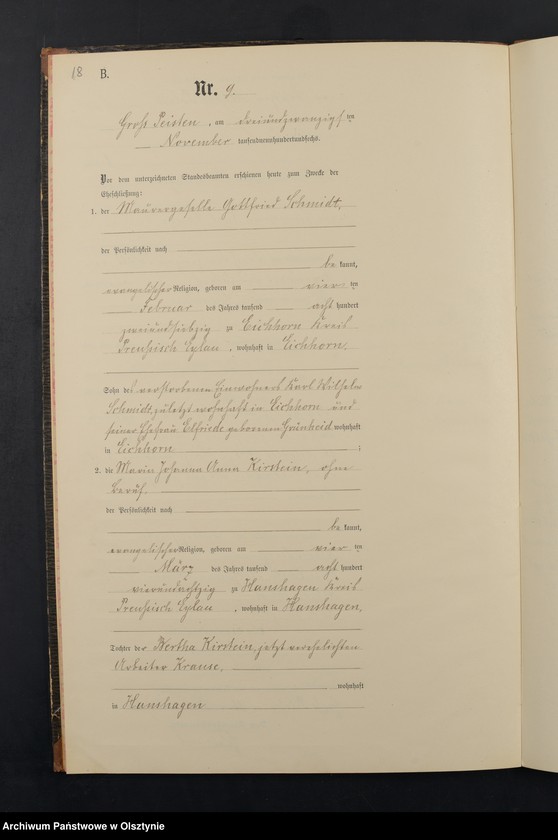 18 B.
Nr. 9.
Groß Peisten, am dreiundzwanzigsten
November tausendneunhundertundsechs.
Vor dem unterzeichneten Standesbeamten erschienen heute zum Zwecke der
Eheschließung:
1. der Maurergeselle Gottfried Schmidt,
der Persönlichkeit nach
be kannt,
evangelischer Religion, geboren am vier ten
Februar des Jahres tausend acht hundert
zweiundsiebzig zu Eichhorn Kreis
Preußisch Eylau, wohnhaft in Eichhorn,
Sohn des verstorbenen Einwohners Karl Wilhelm
Schmidt, zuletzt wohnhaft in Eichhorn und
seiner Ehefrau Elfriede geborenen Grünheid wohnhaft
in Eichhorn ;
2. die Maria Johanna Anna Kirstein, ohne
Beruf.
der Persönlichkeit nach
be kannt,
evangelischer Religion, geboren am vier ten
März des Jahres tausend acht hundert
vierundachtzig zu Hanshagen Kreis
Preußisch Eylau, wohnhaft in Hanshagen,
Tochter der Bertha Kirstein, jetzt verehelichten
Arbeiter Krause,
wohnhaft
in Hanshagen
Archiwum Państwowe w Olsztynie